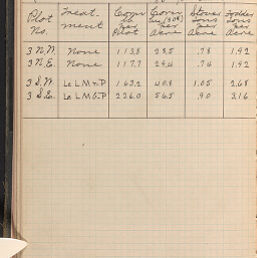 Plot No. Treat- ment Corn lb per Plot Corn bu (70#) per Acre Stover tons per Acre Fodder tons per Acre
3 N.W. None 113.8 28.5 .78 1.92
3 N.E. None 117.7 29.4 .74 1.92
3 S.W. Le L M P 163.2 40.8 1.05 2.68
3 S.E. Le L M P 226.0 56.5 .90 3.16